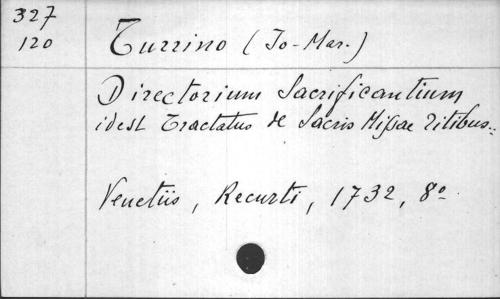 327
120
Turrino (Jo-Mar.)
Directorium Sacrificantium
idest Tractatus de Sacris Missae ritibus..
Venetiis, Recurti, 1732, 8º